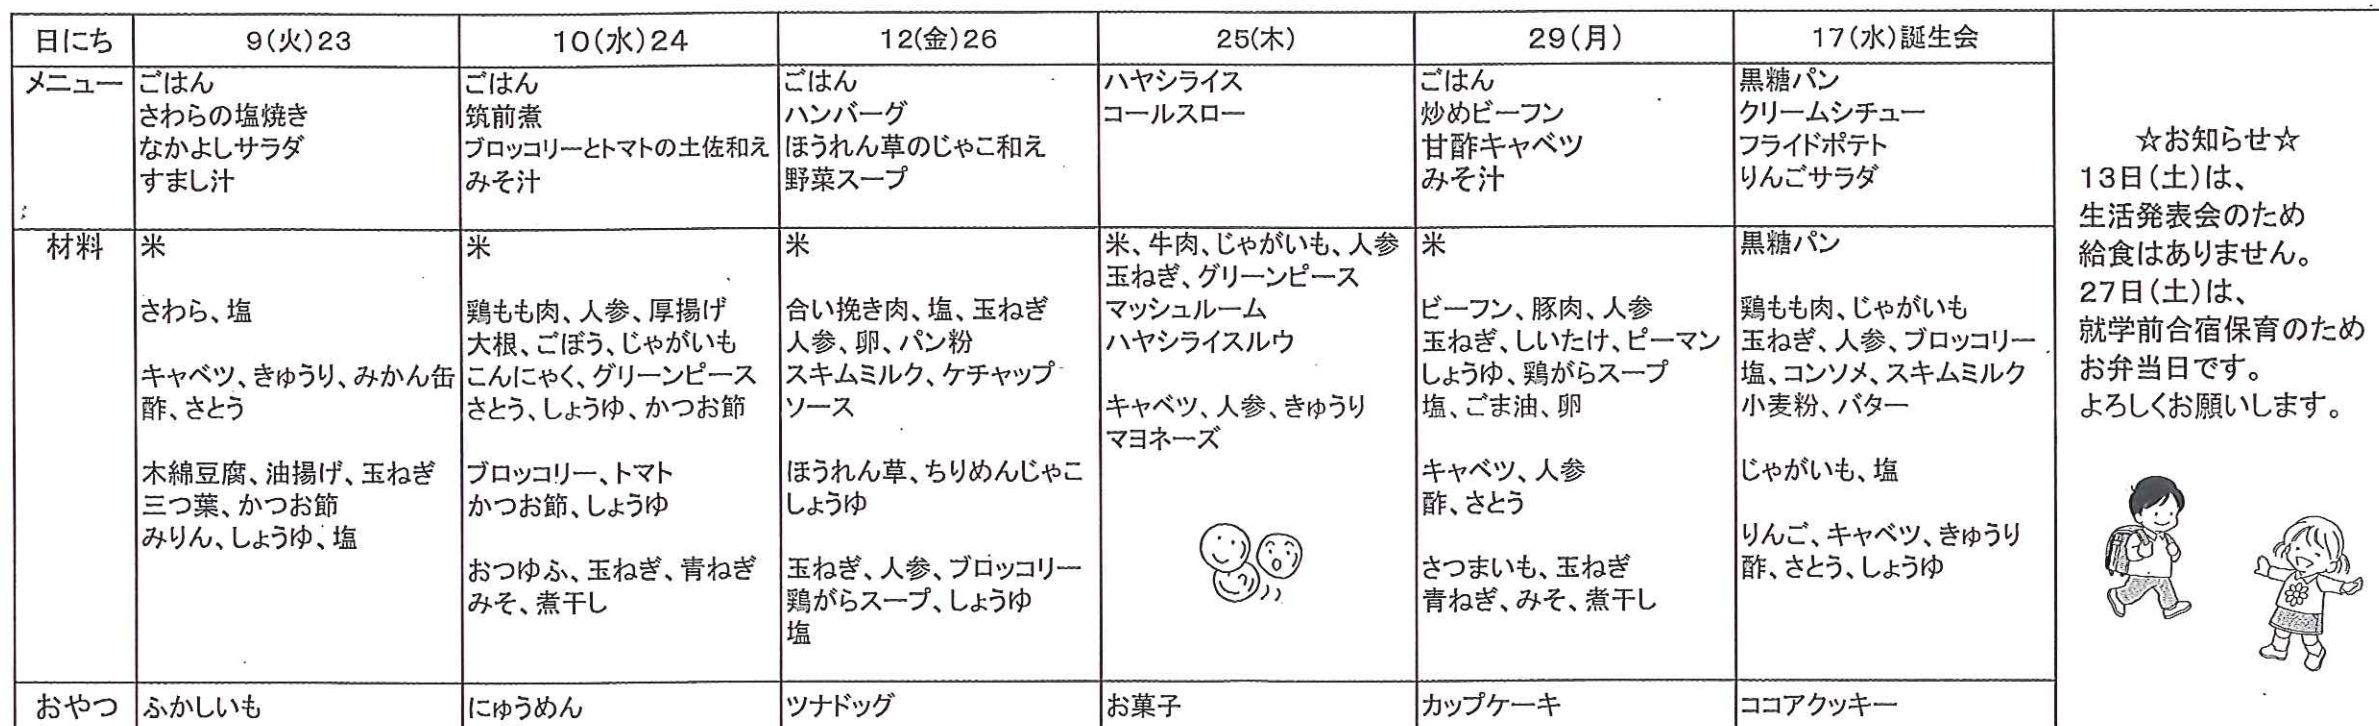 日にち 9(火)23 10(水)24 12(金)26 25(木) 29(月) 17(水)誕生会
メニュー
ごはん
さわらの塩焼き
なかよしサラダ
すまし汁
ごはん
筑前煮
ブロッコリーとトマトの土佐和え
みそ汁
ごはん
ハンバーグ
ほうれん草のじゃこ和え
野菜スープ
ハヤシライス
コールスロー
ごはん
炒めビーフン
甘酢キャベツ
みそ汁
黒糖パン
クリームシチュー
フライドポテト
りんごサラダ
材料
米
さわら、塩
キャベツ、きゅうり、みかん缶
酢、さとう
木綿豆腐、油揚げ、玉ねぎ
三つ葉、かつお節
みりん、しょうゆ、塩
米
鶏もも肉、人参、厚揚げ
大根、ごぼう、じゃがいも
こんにゃく、グリーンピース
さとう、しょうゆ、かつお節
ブロッコリー、トマト
かつお節、しょうゆ
おつゆふ、玉ねぎ、青ねぎ
みそ、煮干し
米
合い挽き肉、塩、玉ねぎ
人参、卵、パン粉
スキムミルク、ケチャップ
ソース
ほうれん草、ちりめんじゃこ
しょうゆ
玉ねぎ、人参、ブロッコリー
鶏がらスープ、しょうゆ
塩
米、牛肉、じゃがいも、人参
玉ねぎ、グリーンピース
マッシュルーム
ハヤシライスルウ
キャベツ、人参、きゅうり
マヨネーズ
米
ビーフン、豚肉、人参
玉ねぎ、しいたけ、ピーマン
しょうゆ、鶏がらスープ
塩、ごま油、卵
キャベツ、人参
酢、さとう
さつまいも、玉ねぎ
青ねぎ、みそ、煮干し
黒糖パン
鶏もも肉、じゃがいも
玉ねぎ、人参、ブロッコリー
塩、コンソメ、スキムミルク
小麦粉、バター
じゃがいも、塩
りんご、キャベツ、きゅうり
酢、さとう、しょうゆ
おやつ ふかしいも にゅうめん ツナドッグ お菓子 カップケーキ ココアクッキー
☆お知らせ☆
13日(土)は、
生活発表会のため
給食はありません。
27日(土)は、
就学前合宿保育のため
お弁当日です。
よろしくお願いします。